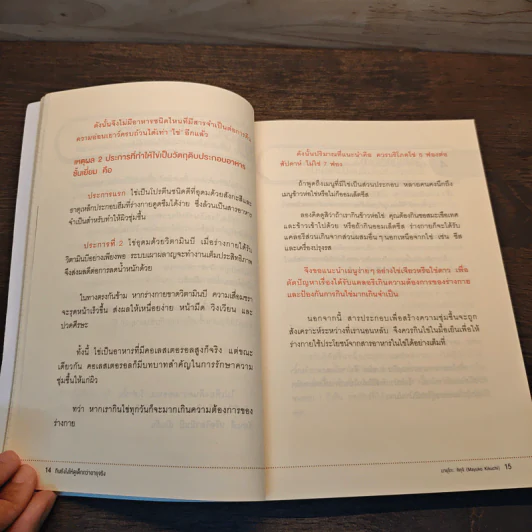 ดังนั้นจึงไม่มีอาหารชนิดไหนที่มีสารจำเป็นต่อการคืน
ความอ่อนเยาว์ครบถ้วนได้เท่า 'ไข่' อีกแล้ว
เหตุผล 2 ประการที่ทำให้ไข่เป็นวัตถุดิบประกอบอาหาร
ชั้นเยี่ยม คือ
ประการแรก ไข่เป็นโปรตีนชนิดดีที่อุดมด้วยสังกะสีและ
ธาตุเหล็กประกอบสีมที่ร่างกายดูดซึมได้ง่าย ซึ่งล้วนเป็นสารอาหาร
จำเป็นสำหรับทำให้ผิวชุ่มชื้น
ประการที่ 2 ไข่อุดมด้วยวิตามินบี เมื่อร่างกายได้รับ
วิตามินบีอย่างเพียงพอ ระบบเผาผลาญจะทำงานเต็มประสิทธิภาพ
จึงส่งผลดีต่อการลดน้ำหนักด้วย
ในทางตรงกันข้าม หากร่างกายขาดวิตามินบี ความเสื่อมชรา
จะรุดหน้าเร็วขึ้น ส่งผลให้เหนื่อยง่าย หน้ามืด วิงเวียน และ
ปวดศีรษะ
ทั้งนี้ ไข่เป็นอาหารที่มีคอเลสเตอรอลสูงก็จริง แต่ขณะ
เดียวกัน คอเลสเตอรอลก็มีบทบาทสำคัญในการรักษาความ
ชุ่มชื้นให้แก่ผิว
ทว่า หากเรากินไข่ทุกวันก็จะมากเกินความต้องการของ
ร่างกาย
14 กินยังไงให้ดูเด็กกว่าอายุจริง
ดังนั้นปริมาณที่แนะนำคือ ควรบริโภคไข่ 5 ฟองต่อ
สัปดาห์ ไม่ใช่ 7 ฟอง
ถ้าพูดถึงเมนูที่มีไข่เป็นส่วนประกอบ หลายคนคงนึกถึง
เมนูข้าวห่อไข่หรือไม่ก็ออมเล็ตชีส
ลองคิดดูสิว่าถ้าเรากินข้าวห่อไข่ คุณต้องกินซอสมะเขือเทศ
และข้าวเข้าไปด้วย หรือถ้ากินออมเล็ตชีส ร่างกายก็จะได้รับ
แคลอรีส่วนเกินจากส่วนผสมอื่นๆนอกเหนือจากไข่ เช่น ชีส
และเครื่องปรุงรส
จึงขอแนะนำเมนูง่ายๆ อย่างไข่เจียวหรือไข่ดาว เพื่อ
ตัดปัญหาเรื่องได้รับแคลอรีเกินความต้องการของร่างกาย
และป้องกันการกินไข่มากเกินจำเป็น
นอกจากนี้ สารประกอบเพื่อสร้างความชุ่มชื้นจะถูก
สังเคราะห์ระหว่างที่เรานอนหลับ จึงควรกินไข่ในมื้อเย็นเพื่อให้
ร่างกายใช้ประโยชน์จากสารอาหารในไข่ได้อย่างเต็มที่
มายูโกะ คิคุจิ (Mayuko Kikuchi) 15